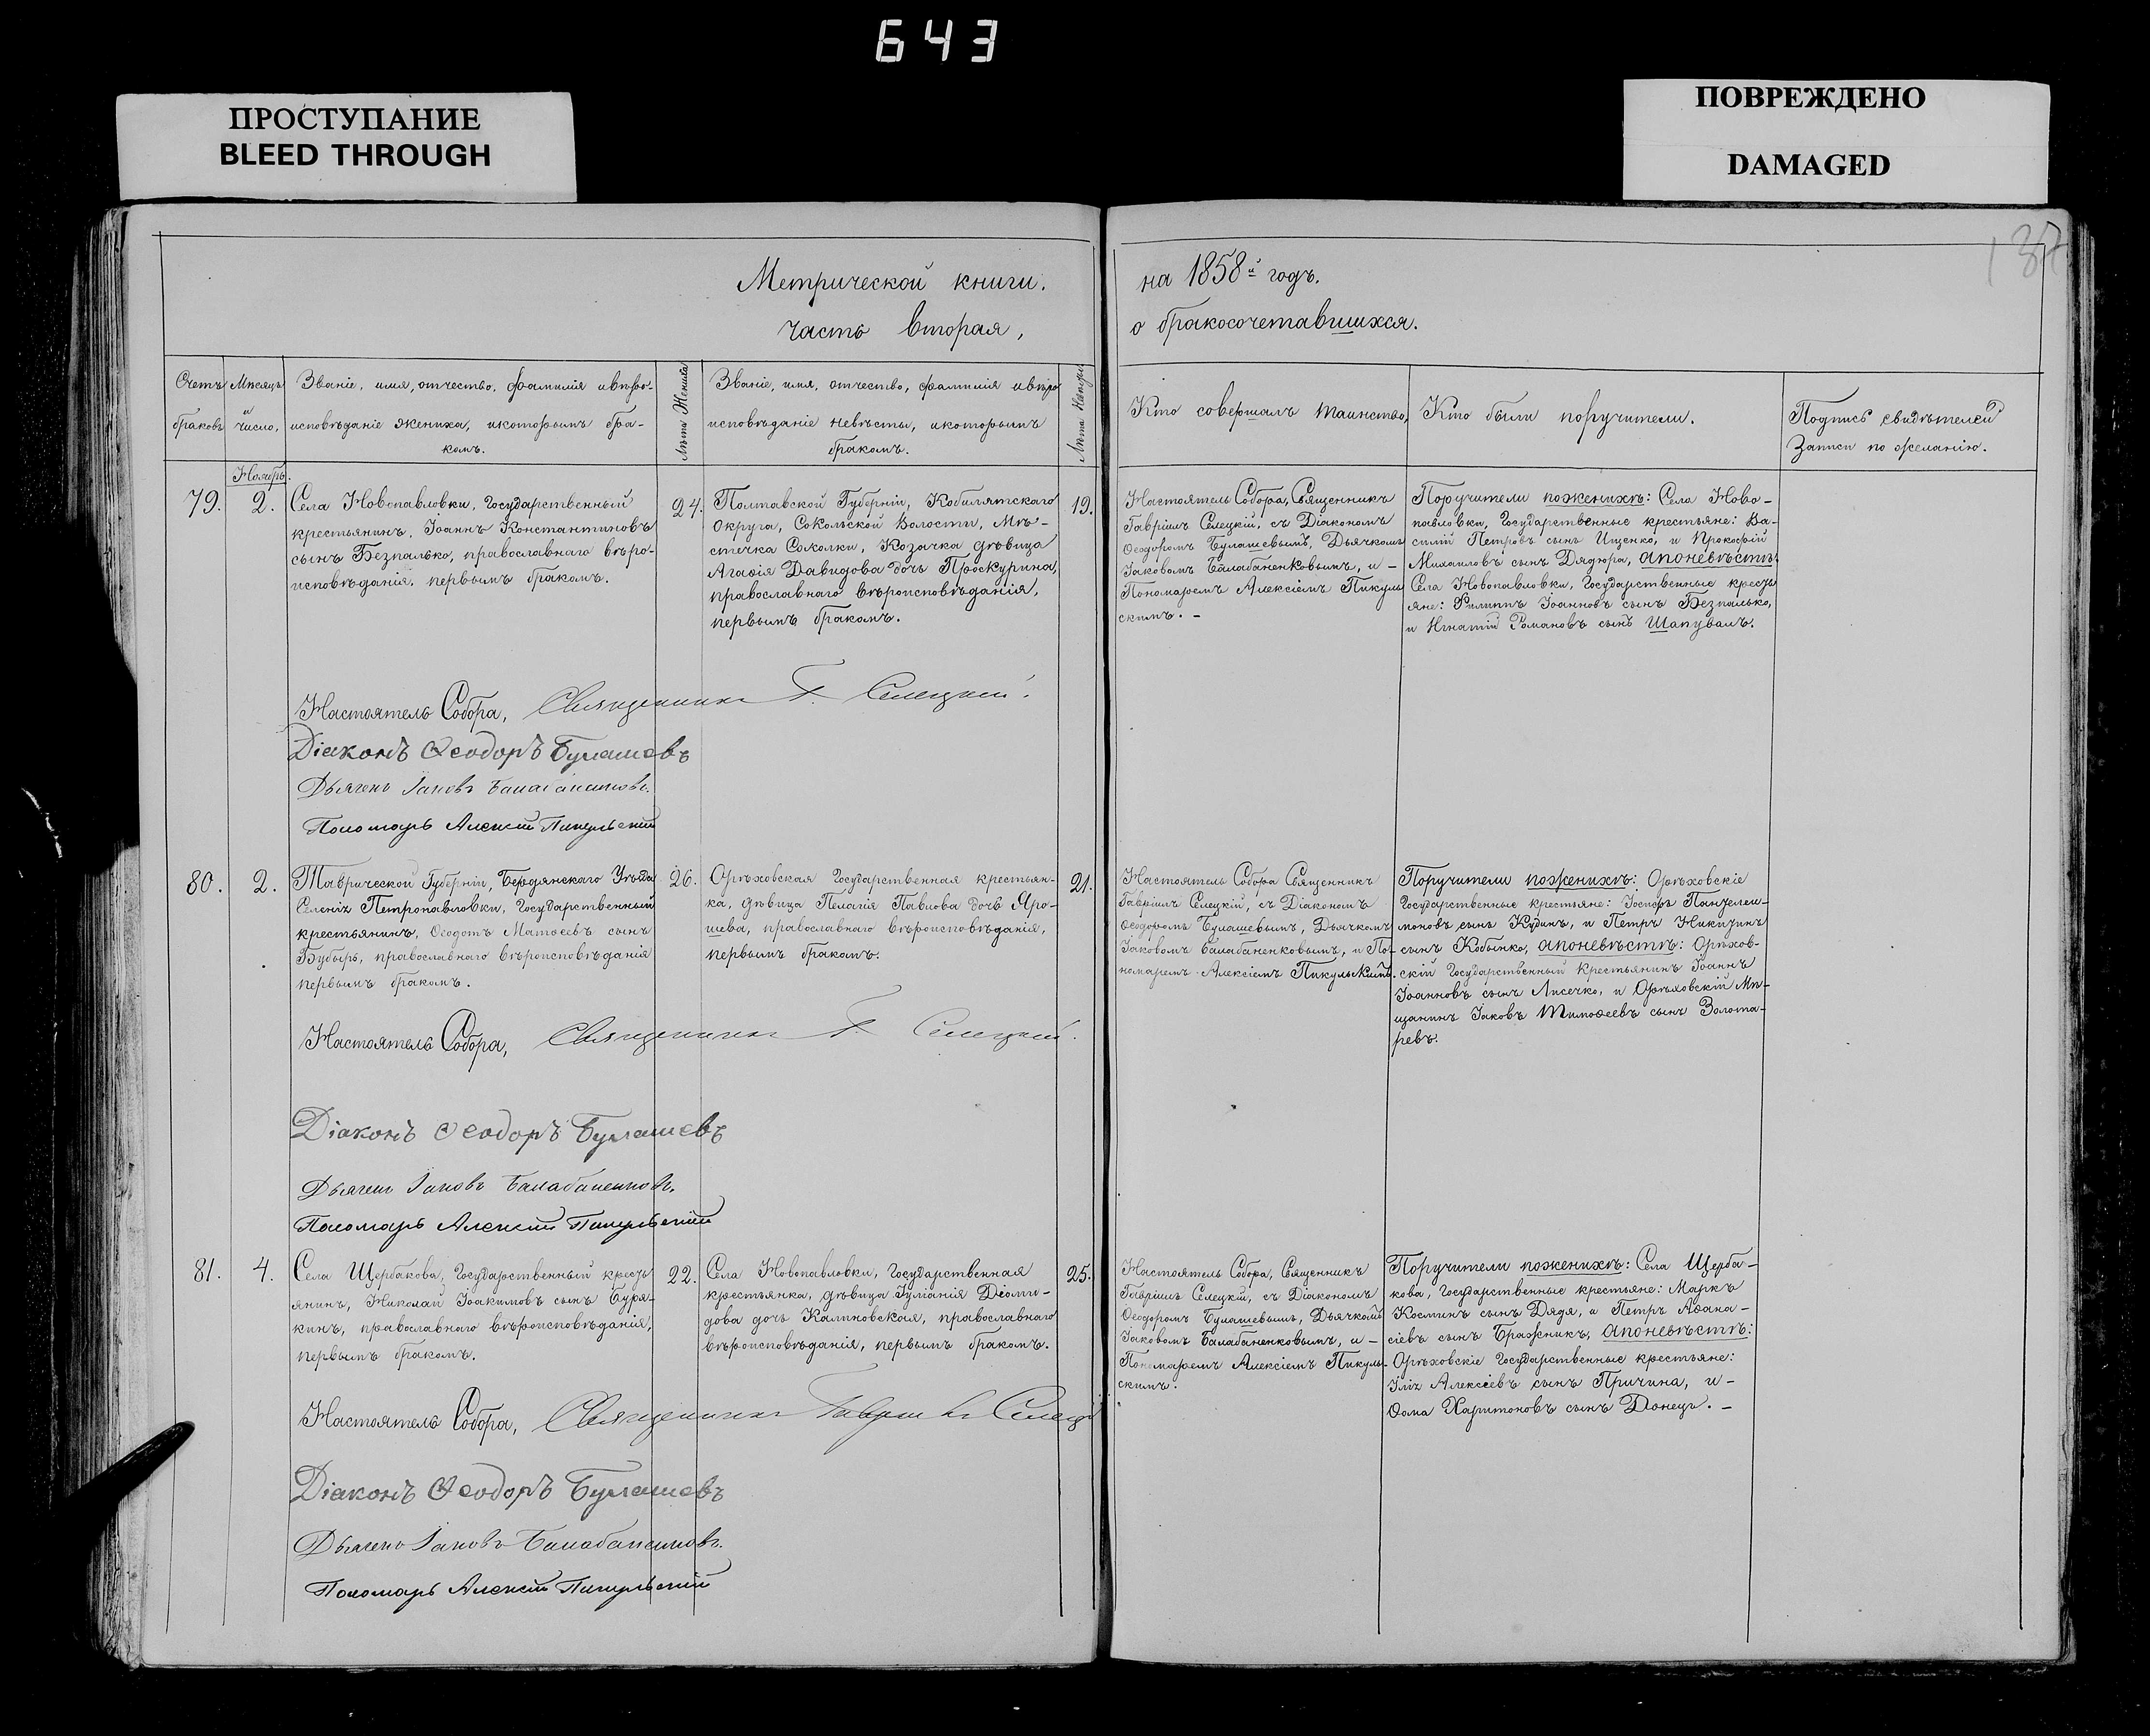 643
ПРОСТУПАНИЕ
BLEED THROUGH
ПОВРЕЖДЕНО
DAMAGED
137
Метрической книги.
на 1858й годъ.
часть вторая,
о бракосочетавшихся.
Счетъ
браковъ
Мѣсяцъ
и
число,
Званіе, имя, отчество, фамилія и вѣро-
исповѣданіе жениха, и которымъ бра-
комъ.
Лѣта Жениха
Званіе, имя, отчество, фамилія и вѣро
исповѣданіе невѣсты, и которымъ
бракомъ.
Лѣта Невѣсты
Кто совершалъ таинство,
Кто были поручители.
Подпись свидѣтелей
Записи по желанію.
Ноябрь.
79.
2.
Села Новопавловки, Государственный
крестьянинъ, Іоаннъ Константиновъ
сынъ Безпалько, православнаго вѣро-
исповѣданія, первымъ бракомъ.
24.
Полтавской Губерніи, Кобилятскаго
округа, Сокольской Волости, Мѣ-
стечка Соколки, Козачка дѣвица
Агафія Давидова дочь Проскурина,
православнаго вѣроисповѣданія,
первымъ бракомъ.
19.
Настоятель Собора, Священникъ
Гавріилъ Селецкій, съ Діакономъ
Ѳеодоромъ Булашевымъ, Дьячкомъ
Іаковомъ Балабаненковымъ, и -
Пономаремъ Алексіемъ Пикуль
скимъ. -
Поручители по женихѣ: Села Ново-
павловки, Государственные крестьяне: Ва-
силій Петровъ сынъ Ищенко, и Прокофій
Михаиловъ сынъ Дядюра, а по невѣстѣ:
Села Новопавловки, Государственные кресть
яне: Филиппъ Іоанновъ сынъ Безпалько,
и Игнатій Романовъ сынъ Шапувалъ.
Настоятель Собора, Священникъ Г. Селецкій.
Діаконъ Ѳеодоръ Булашевъ
Дьячекъ Іаковъ Балабаненковъ.
Пономарь Алексій Пикульскій
80.
2.
Таврической Губерніи, Бердянскаго Уѣзда
Селенія Петропавловки, Государственный
крестьянинъ, Ѳеодотъ Матѳеевъ сынъ
Бубыръ, православнаго вѣроисповѣданія
первымъ бракомъ.
26.
Орѣховская Государственная крестьян-
ка, дѣвица Пелагія Павлова дочь Яро-
шева, православнаго вѣроисповѣданія,
первымъ бракомъ.
21.
Настоятель Собора Священникъ
Гавріилъ Селецкій, съ Діакономъ
Ѳеодоромъ Булашевымъ, Дьячкомъ
Іаковомъ Балабаненковымъ, и По-
номаремъ Алексіемъ Пикульскимъ.
Поручители по женихѣ: Орѣховскіе
Государственные крестьяне: Іосифъ Пантелеи-
моновъ сынъ Кудинъ, и Петръ Никитинъ
сынъ Кобынко, а по невѣстѣ: Орѣхов-
скій Государственный крестьянинъ Іоаннъ
Іоанновъ сынъ Лисечко, и Орѣховскій Мѣ-
щанинъ Іаковъ Тимоѳеевъ сынъ Золота-
ревъ.
Настоятель Собора, Священникъ Г. Селецкій.
Діаконъ Ѳеодоръ Булашевъ
Дьячекъ Іаковъ Балабаненковъ.
Пономарь Алексій Пикульскій
81.
4.
Села Щербакова, Государственный кресть
янинъ, Николай Іоакимовъ сынъ Буря-
кинъ, православнаго вѣроисповѣданія,
первымъ бракомъ.
22.
Села Новопавловки, Государственная
крестьянка, дѣвица Іуліанія Діоми-
дова дочь Калиновская, православнаго
вѣроисповѣданія, первымъ бракомъ.
25.
Настоятель Собора, Священникъ
Гавріилъ Селецкій, съ Діакономъ
Ѳеодоромъ Булашевымъ, Дьячкомъ
Іаковомъ Балабаненковымъ, и -
Пономаремъ Алексіемъ Пикуль-
скимъ.
Поручители по женихѣ: Села Щерба-
кова, Государственные крестьяне: Маркъ
Косминъ сынъ Дядя, и Петръ Аѳана-
сіевъ сынъ Бражникъ, а по невѣстѣ:
Орѣховскіе Государственные крестьяне:
Илія Алексѣевъ сынъ Причина, и -
Ѳома Харитоновъ сынъ Донецъ. -
Настоятель Собора, Священникъ Гавріилъ Селецк
Діаконъ Ѳеодоръ Булашевъ
Дьячекъ Іаковъ Балабаненковъ.
Пономарь Алексій Пикульскій